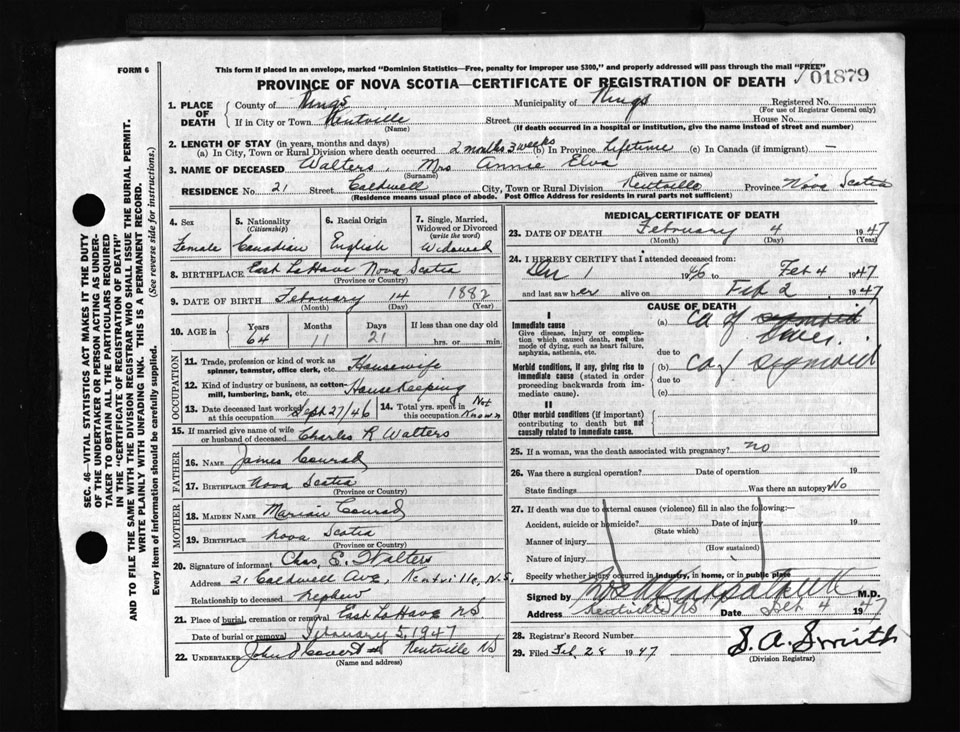 FORM 6
This form if placed in an envelope, marked "Dominion Statistics—Free, penalty for improper use $300," and properly addressed will pass through the mail "FREE"
PROVINCE OF NOVA SCOTIA—CERTIFICATE OF REGISTRATION OF DEATH
01879
1. PLACE OF DEATH
County of Kings Municipality of Kings Registered No.
(For use of Registrar General only)
If in City or Town Kentville Street House No.
(Name) (If death occurred in a hospital or institution, give the name instead of street and number)
2. LENGTH OF STAY (in years, months and days)
(a) In City, Town or Rural Division where death occurred 2 months 3 weeks (b) In Province Lifetime (c) In Canada (if immigrant) —
3. NAME OF DECEASED Walters, Mrs Annie Elva
(Surname) (Given name or names)
RESIDENCE No. 21 Street Caldwell City, Town or Rural Division Kentville Province Nova Scotia
(Residence means usual place of abode. Post Office Address for residents in rural parts not sufficient)
4. Sex
Female
5. Nationality (Citizenship)
Canadian
6. Racial Origin
English
7. Single, Married, Widowed or Divorced (write the word)
Widowed
8. BIRTHPLACE East LaHave Nova Scotia
(Province or Country)
9. DATE OF BIRTH February 14 1882
(Month) (Day) (Year)
10. AGE in
Years Months Days If less than one day old
64 11 21 hrs. or min.
OCCUPATION
11. Trade, profession or kind of work as spinner, teamster, office clerk, etc. Housewife
12. Kind of industry or business, as cotton-mill, lumbering, bank, etc. House Keeping
13. Date deceased last worked at this occupation Sept 27/46
14. Total yrs. spent in this occupation Not Known
15. If married give name of wife or husband of deceased Charles R Walters
FATHER
16. NAME James Conrad
17. BIRTHPLACE Nova Scotia
(Province or Country)
MOTHER
18. MAIDEN NAME Marian Conrad
19. BIRTHPLACE Nova Scotia
(Province or Country)
20. Signature of informant Chas. E. Walters
Address 21 Caldwell Ave, Kentville, N.S.
Relationship to deceased nephew
21. Place of burial, cremation or removal East LaHave NS
Date of burial or removal February 5, 1947
22. UNDERTAKER Kentville NS
(Name and address)
MEDICAL CERTIFICATE OF DEATH
23. DATE OF DEATH February 4 1947
(Month) (Day) (Year)
24. I HEREBY CERTIFY that I attended deceased from:
Dec 1 1946 to Feb 4 1947
and last saw her alive on Feb 2 1947
CAUSE OF DEATH
I
Immediate cause
Give disease, injury or complication which caused death, not the mode of dying, such as heart failure, asphyxia, asthenia, etc.
(a) Ca of sigmoid liver.
due to
Morbid conditions, if any, giving rise to immediate cause (stated in order proceeding backwards from immediate cause).
(b) Ca of sigmoid
due to
(c)
II
Other morbid conditions (if important) contributing to death but not causally related to immediate cause.
25. If a woman, was the death associated with pregnancy? no
26. Was there a surgical operation? Date of operation 19
State findings Was there an autopsy No
27. If death was due to external causes (violence) fill in also the following:—
Accident, suicide or homicide? Date of injury 19
(State which)
Manner of injury
(How sustained)
Nature of injury
Specify whether injury occurred in industry, in home, or in public place
Signed by M.D.
Address Kentville NS Date Feb 4 1947
28. Registrar's Record Number
29. Filed Feb 28 1947 S. A. Smith
(Division Registrar)
SEC. 46—VITAL STATISTICS ACT MAKES IT THE DUTY
OF THE UNDERTAKER OR PERSON ACTING AS UNDER-
TAKER TO OBTAIN ALL THE PARTICULARS REQUIRED
IN THE "CERTIFICATE OF REGISTRATION OF DEATH"
AND TO FILE THE SAME WITH THE DIVISION REGISTRAR WHO SHALL ISSUE THE BURIAL PERMIT.
WRITE PLAINLY WITH UNFADING INK. THIS IS A PERMANENT RECORD.
Every item of information should be carefully supplied. (See reverse side for instructions.)